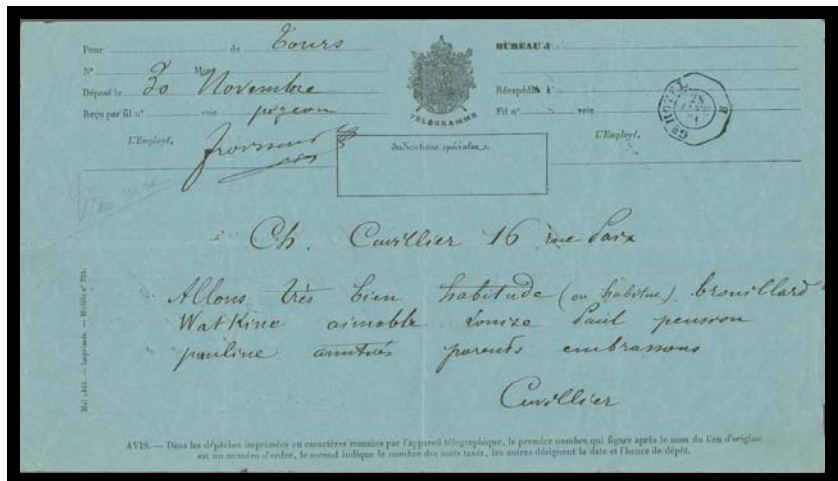 Pour de Tours
BUREAU d
N° Mots
Déposé le 30 Novembre
Réexpédié à
Reçu par fil n° voie pigeon
Fil n° voie
TÉLÉGRAMME
L'Employé,
Indications spéciales.
L'Employé,
Gd HOTEL
Ch. Cuvillier 16 rue Paix
Allons très bien habitude (ou habitue) brouillard
Watkine aimable Louise Paul pension
pauline amitiés parents embrassons
Cuvillier
Imprimés. — Modèle n°
AVIS. — Dans les dépêches imprimées en caractères romains par l'appareil télégraphique, le premier nombre qui figure après le nom du lieu d'origine
est un numéro d'ordre, le second indique le nombre des mots taxés, les autres désignent la date et l'heure de dépôt.